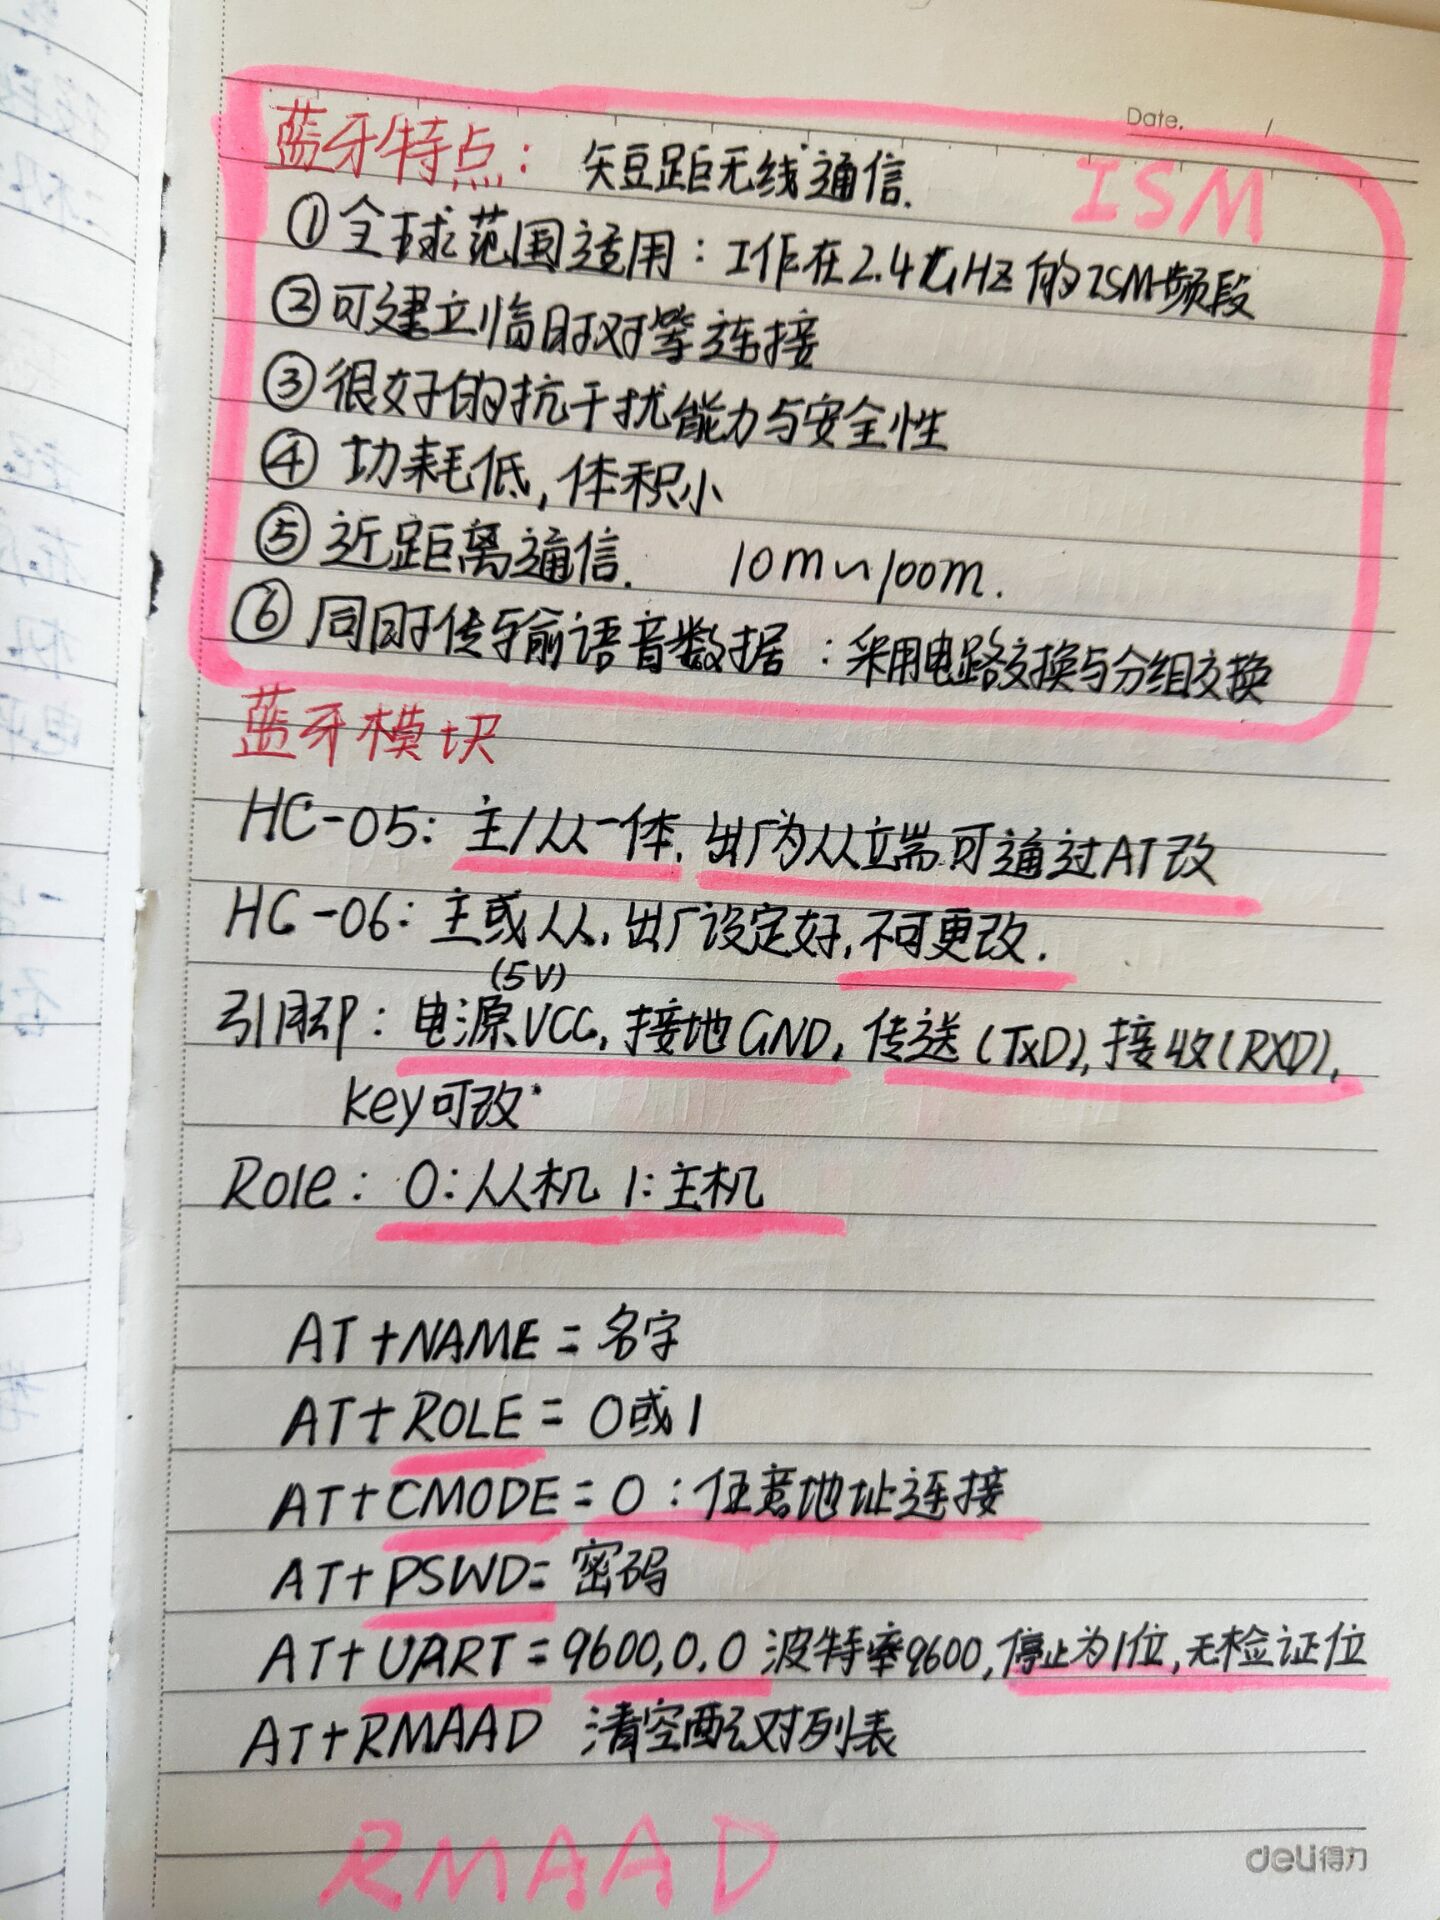 Date. /
蓝牙特点: 短距无线通信. ISM
①全球范围适用:工作在2.4GHz的ISM频段
②可建立临时对等连接
③很好的抗干扰能力与安全性
④功耗低,体积小
⑤近距离通信. 10m~100m.
⑥同时传输语音数据:采用电路交换与分组交换
蓝牙模块
HC-05:主/从一体.出厂为从立端可通过AT改
HC-06:主或从,出厂设定好,不可更改.
(5V)
引脚:电源VCC,接地GND,传送(TXD),接收(RXD),
Key可改
Role: 0:从机 1:主机
AT+NAME=名字
AT+ROLE=0或1
AT+CMODE=0:任意地址连接
AT+PSWD=密码
AT+UART=9600,0,0 波特率9600,停止为1位,无检证位
AT+RMAAD 清空配对列表
RMAAD
deli得力